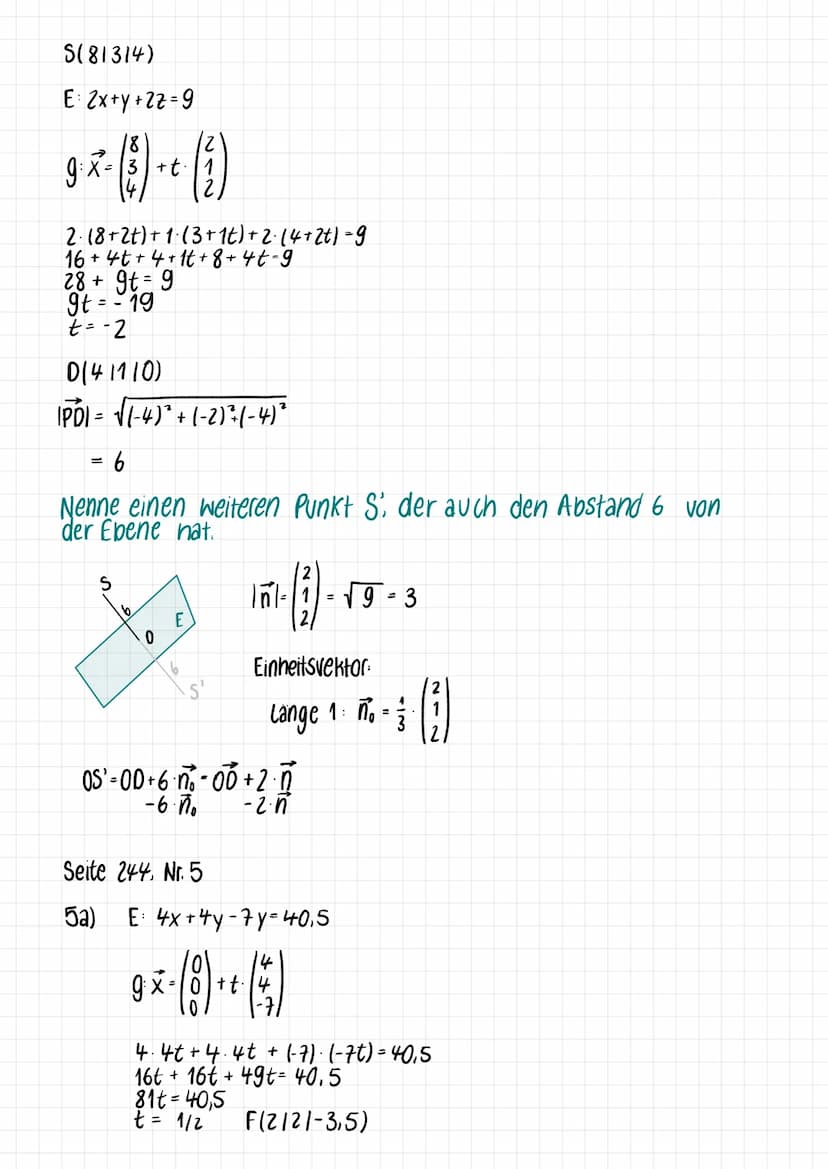 S(8|3|4)
E: 2x+y+2z=9
g: x⃗ = (8 3 4) + t · (2 1 2)
2·(8+2t)+1·(3+1t)+2·(4+2t)=9
16+4t+4+1t+8+4t=9
28+9t=9
9t=-19
t=-2
D(4|1|0)
|PD⃗| = √(-4)²+(-2)²+(-4)²
= 6
Nenne einen weiteren Punkt S', der auch den Abstand 6 von
der Ebene hat.
S
6
E
D
6
S'
|n⃗| = (2 1 2) = √9 = 3
Einheitsvektor:
Länge 1: n⃗₀ = 1/3 · (2 1 2)
OS'=OD+6·n⃗₀=OD⃗+2·n⃗
-6·n⃗₀ -2·n⃗
Seite 244, Nr. 5
5a) E: 4x+4y-7y=40,5
g: x⃗ = (0 0 0) + t · (4 4 -7)
4·4t+4·4t+(-7)·(-7t)=40,5
16t+16t+49t=40,5
81t=40,5
t= 1/2 F(2|2|-3,5)